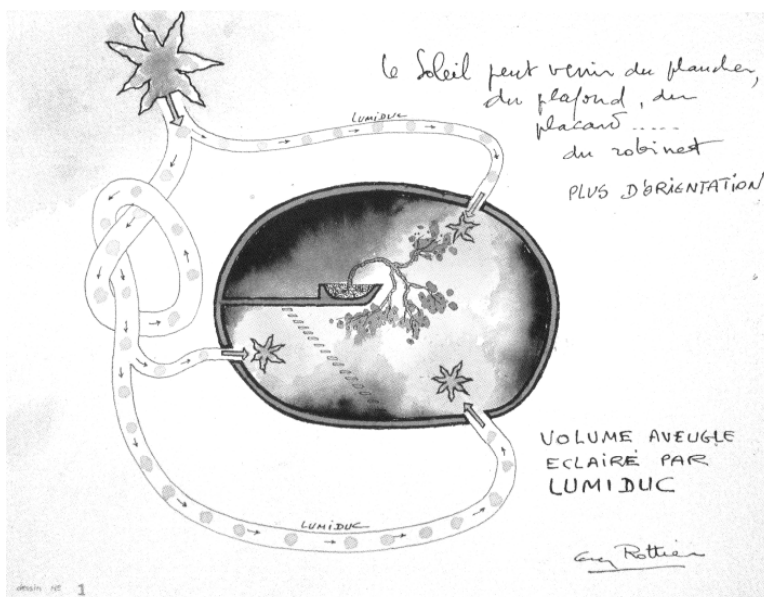 le Soleil peut venir du plancher,
du plafond, du
placard.....
du robinet
PLUS D'ORIENTATION
LUMIDUC
VOLUME AVEUGLE
ECLAIRÉ PAR
LUMIDUC
LUMIDUC
Guy Rottier
dessin No 1